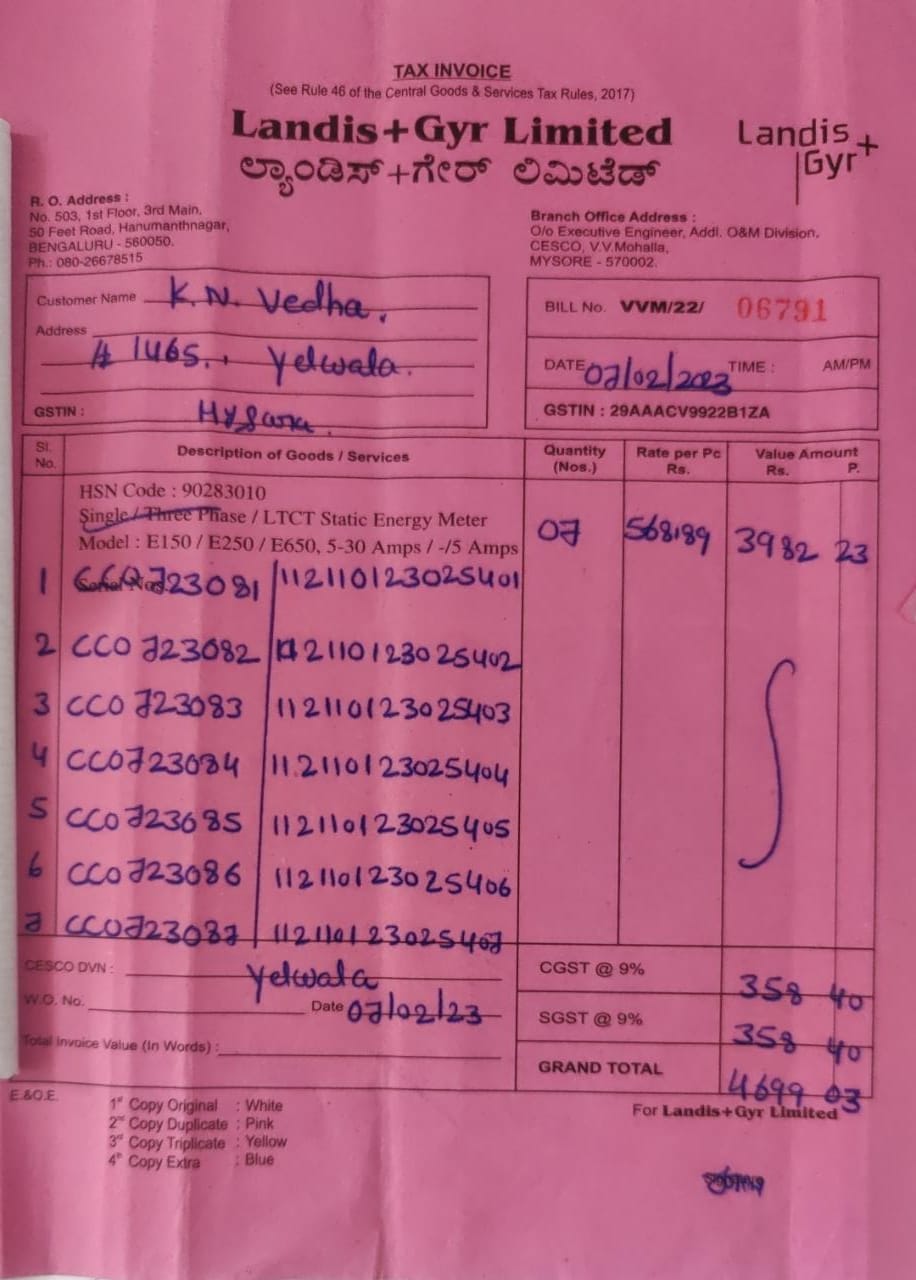 TAX INVOICE
(See Rule 46 of the Central Goods & Services Tax Rules, 2017)
Landis+Gyr Limited
ಲ್ಯಾಂಡಿಸ್+ಗೇರ್ ಲಿಮಿಟೆಡ್
Landis
Gyr+
R. O. Address :
No. 503, 1st Floor, 3rd Main,
50 Feet Road, Hanumanthnagar,
BENGALURU - 560050.
Ph.: 080-26678515
Branch Office Address :
O/o Executive Engineer, Addl. O&M Division,
CESCO, V.V.Mohalla,
MYSORE - 570002.
Customer Name K.N. Vedha.
Address
# 1465., Yelwala.
GSTIN : Mysore.
BILL No. VVM/22/ 06791
DATE 07/02/2023 TIME : AM/PM
GSTIN : 29AAACV9922B1ZA
Sl. No. Description of Goods / Services Quantity (Nos.) Rate per Pc Rs. Value Amount Rs. P.
HSN Code : 90283010
Single / Three Phase / LTCT Static Energy Meter
Model : E150 / E250 / E650, 5-30 Amps / -/5 Amps 07 568.89 3982 23
Serial Nos.
1 CC0723081 112110123025401
2 CC0723082 112110123025402
3 CC0723083 112110123025403
4 CC0723084 112110123025404
5 CC0723085 112110123025405
6 CC0723086 112110123025406
7 CC0723087 112110123025407
CESCO DVN : Yelwala
W.O. No. Date 07/02/23
Total Invoice Value (In Words) :
CGST @ 9% 358 40
SGST @ 9% 358 40
GRAND TOTAL 4699 03
E.&O.E.
1st Copy Original : White
2nd Copy Duplicate : Pink
3rd Copy Triplicate : Yellow
4th Copy Extra : Blue
For Landis+Gyr Limited